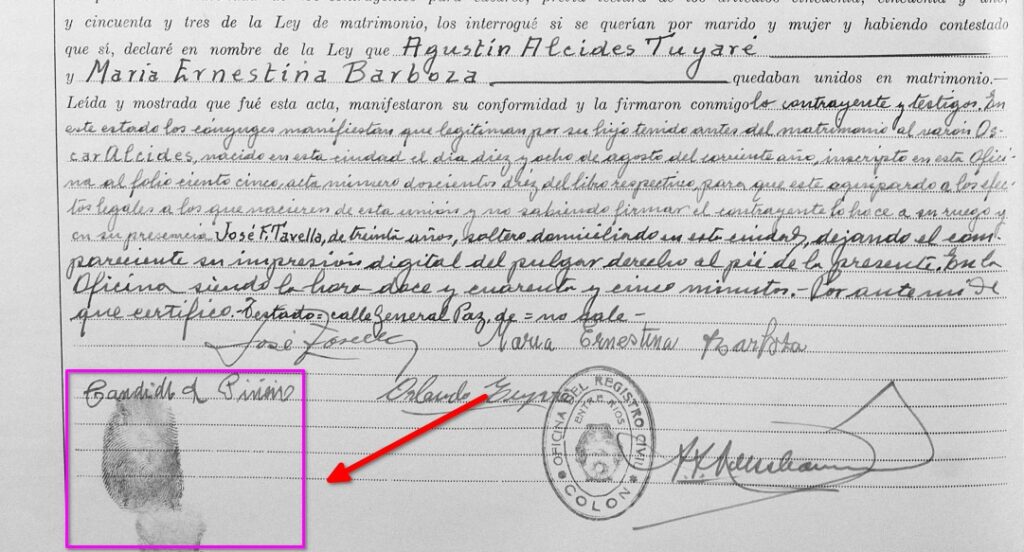 y cincuenta y tres de la Ley de matrimonio, los interrogué si se querían por marido y mujer y habiendo contestado
que sí, declaré en nombre de la Ley que Agustín Alcides Tuyaré
y María Ernestina Barboza quedaban unidos en matrimonio.—
Leída y mostrada que fué esta acta, manifestaron su conformidad y la firmaron conmigo la contrayente y testigos. En
este estado los cónyuges manifiestan que legitiman por su hijo tenido antes del matrimonio al varón Os-
car Alcides, nacido en esta ciudad el día diez y ocho de agosto del corriente año, inscripto en esta Ofici-
na al folio ciento cinco, acta número doscientos diez del libro respectivo, para que este equiparado a los efec-
tos legales a los que nacieren de esta unión y no sabiendo firmar el contrayente lo hace a su ruego y
en su presencia José F. Tavella, de treinta años, soltero domiciliado en esta ciudad, dejando el com-
pareciente su impresión digital del pulgar derecho al pié de la presente. En la
Oficina siendo la hora doce y cuarenta y cinco minutos.- Por ante mí de
que certifico.- Testado= calle General Paz, de = no vale -
José María Ernestina Barboza
Orlando
OFICINA DEL REGISTRO CIVIL
ENTRE RIOS
COLON